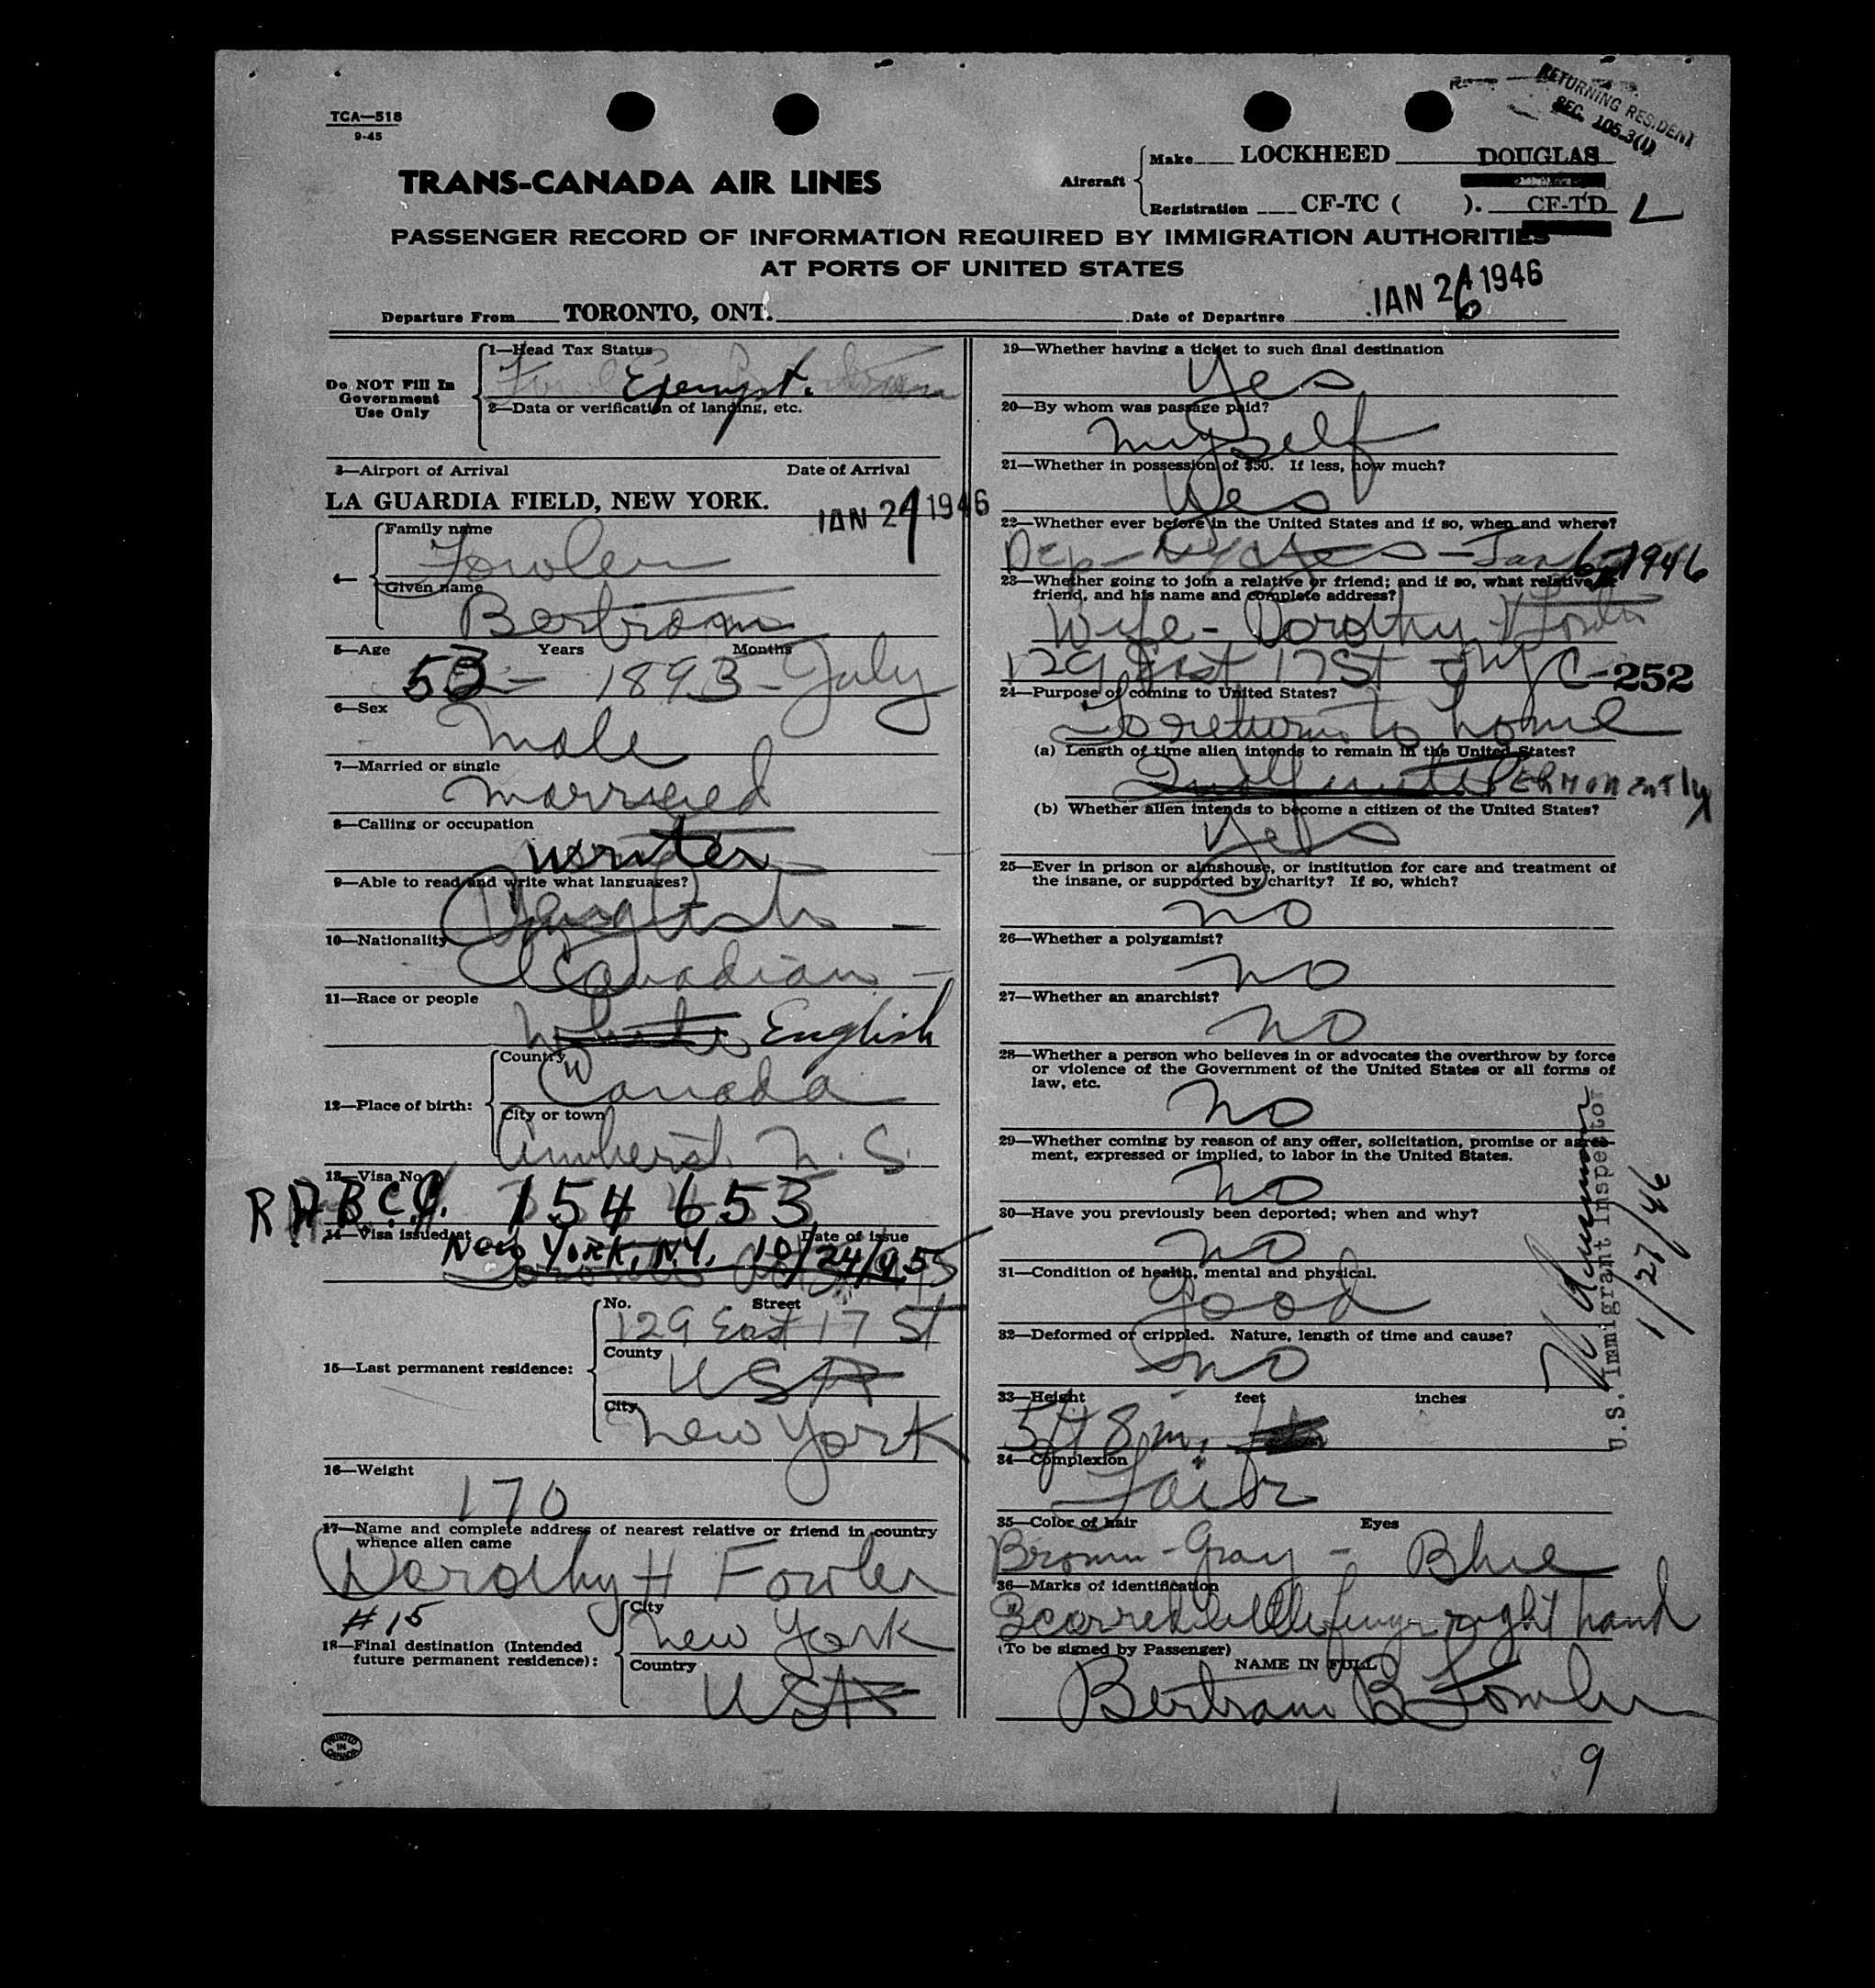 TCA—518
9-45
RETURNING RESIDENT
SEC. 105.3(1)
TRANS-CANADA AIR LINES
Aircraft
Make LOCKHEED DOUGLAS
Registration CF-TC ( ). CF-TD L
PASSENGER RECORD OF INFORMATION REQUIRED BY IMMIGRATION AUTHORITIES
AT PORTS OF UNITED STATES
Departure From TORONTO, ONT. Date of Departure JAN 26 1946
Do NOT Fill In
Government
Use Only
1—Head Tax Status
Exempt.
2—Data or verification of landing, etc.
3—Airport of Arrival Date of Arrival
LA GUARDIA FIELD, NEW YORK. JAN 27 1946
4—
Family name
Fowler
Given name
Bertram
5—Age Years Months
52 - 1893 - July
6—Sex
Male
7—Married or single
Married
8—Calling or occupation
writer
9—Able to read and write what languages?
English -
10—Nationality
Canadian -
11—Race or people
White English
12—Place of birth:
Country
Canada
City or town
Amherst N.S.
13—Visa No.
R.A.B.C.C. 154653
14—Visa issued at Date of issue
New York, N.Y. 10/24/45
15—Last permanent residence:
No. Street
129 East 17 St
County
USA
City
New York
16—Weight
170
17—Name and complete address of nearest relative or friend in country
whence alien came
Dorothy H Fowler
# 15
18—Final destination (Intended
future permanent residence):
City
New York
Country
USA
PRINTED
IN
CANADA
19—Whether having a ticket to such final destination
Yes
20—By whom was passage paid?
myself
21—Whether in possession of $50. If less, how much?
Yes
22—Whether ever before in the United States and if so, when and where?
Dep - NY Yes - Jan 6-1946
23—Whether going to join a relative or friend; and if so, what relative or
friend, and his name and complete address?
Wife - Dorothy H Fowler
129 East 17 St NYC - 252
24—Purpose of coming to United States?
To return to home
(a) Length of time alien intends to remain in the United States?
PERMANENTLY
(b) Whether alien intends to become a citizen of the United States?
Yes
25—Ever in prison or almshouse, or institution for care and treatment of
the insane, or supported by charity? If so, which?
no
26—Whether a polygamist?
no
27—Whether an anarchist?
no
28—Whether a person who believes in or advocates the overthrow by force
or violence of the Government of the United States or all forms of
law, etc.
no
29—Whether coming by reason of any offer, solicitation, promise or agree-
ment, expressed or implied, to labor in the United States.
no
30—Have you previously been deported; when and why?
no
31—Condition of health, mental and physical.
Good
32—Deformed or crippled. Nature, length of time and cause?
no
33—Height feet inches
5 ft 8 in.
34—Complexion
Fair
35—Color of hair Eyes
Brown - Gray - Blue
36—Marks of identification
Scarred little finger right hand
(To be signed by Passenger)
NAME IN FULL
Bertram B Fowler
9
U.S. Immigrant Inspector
1/27/46